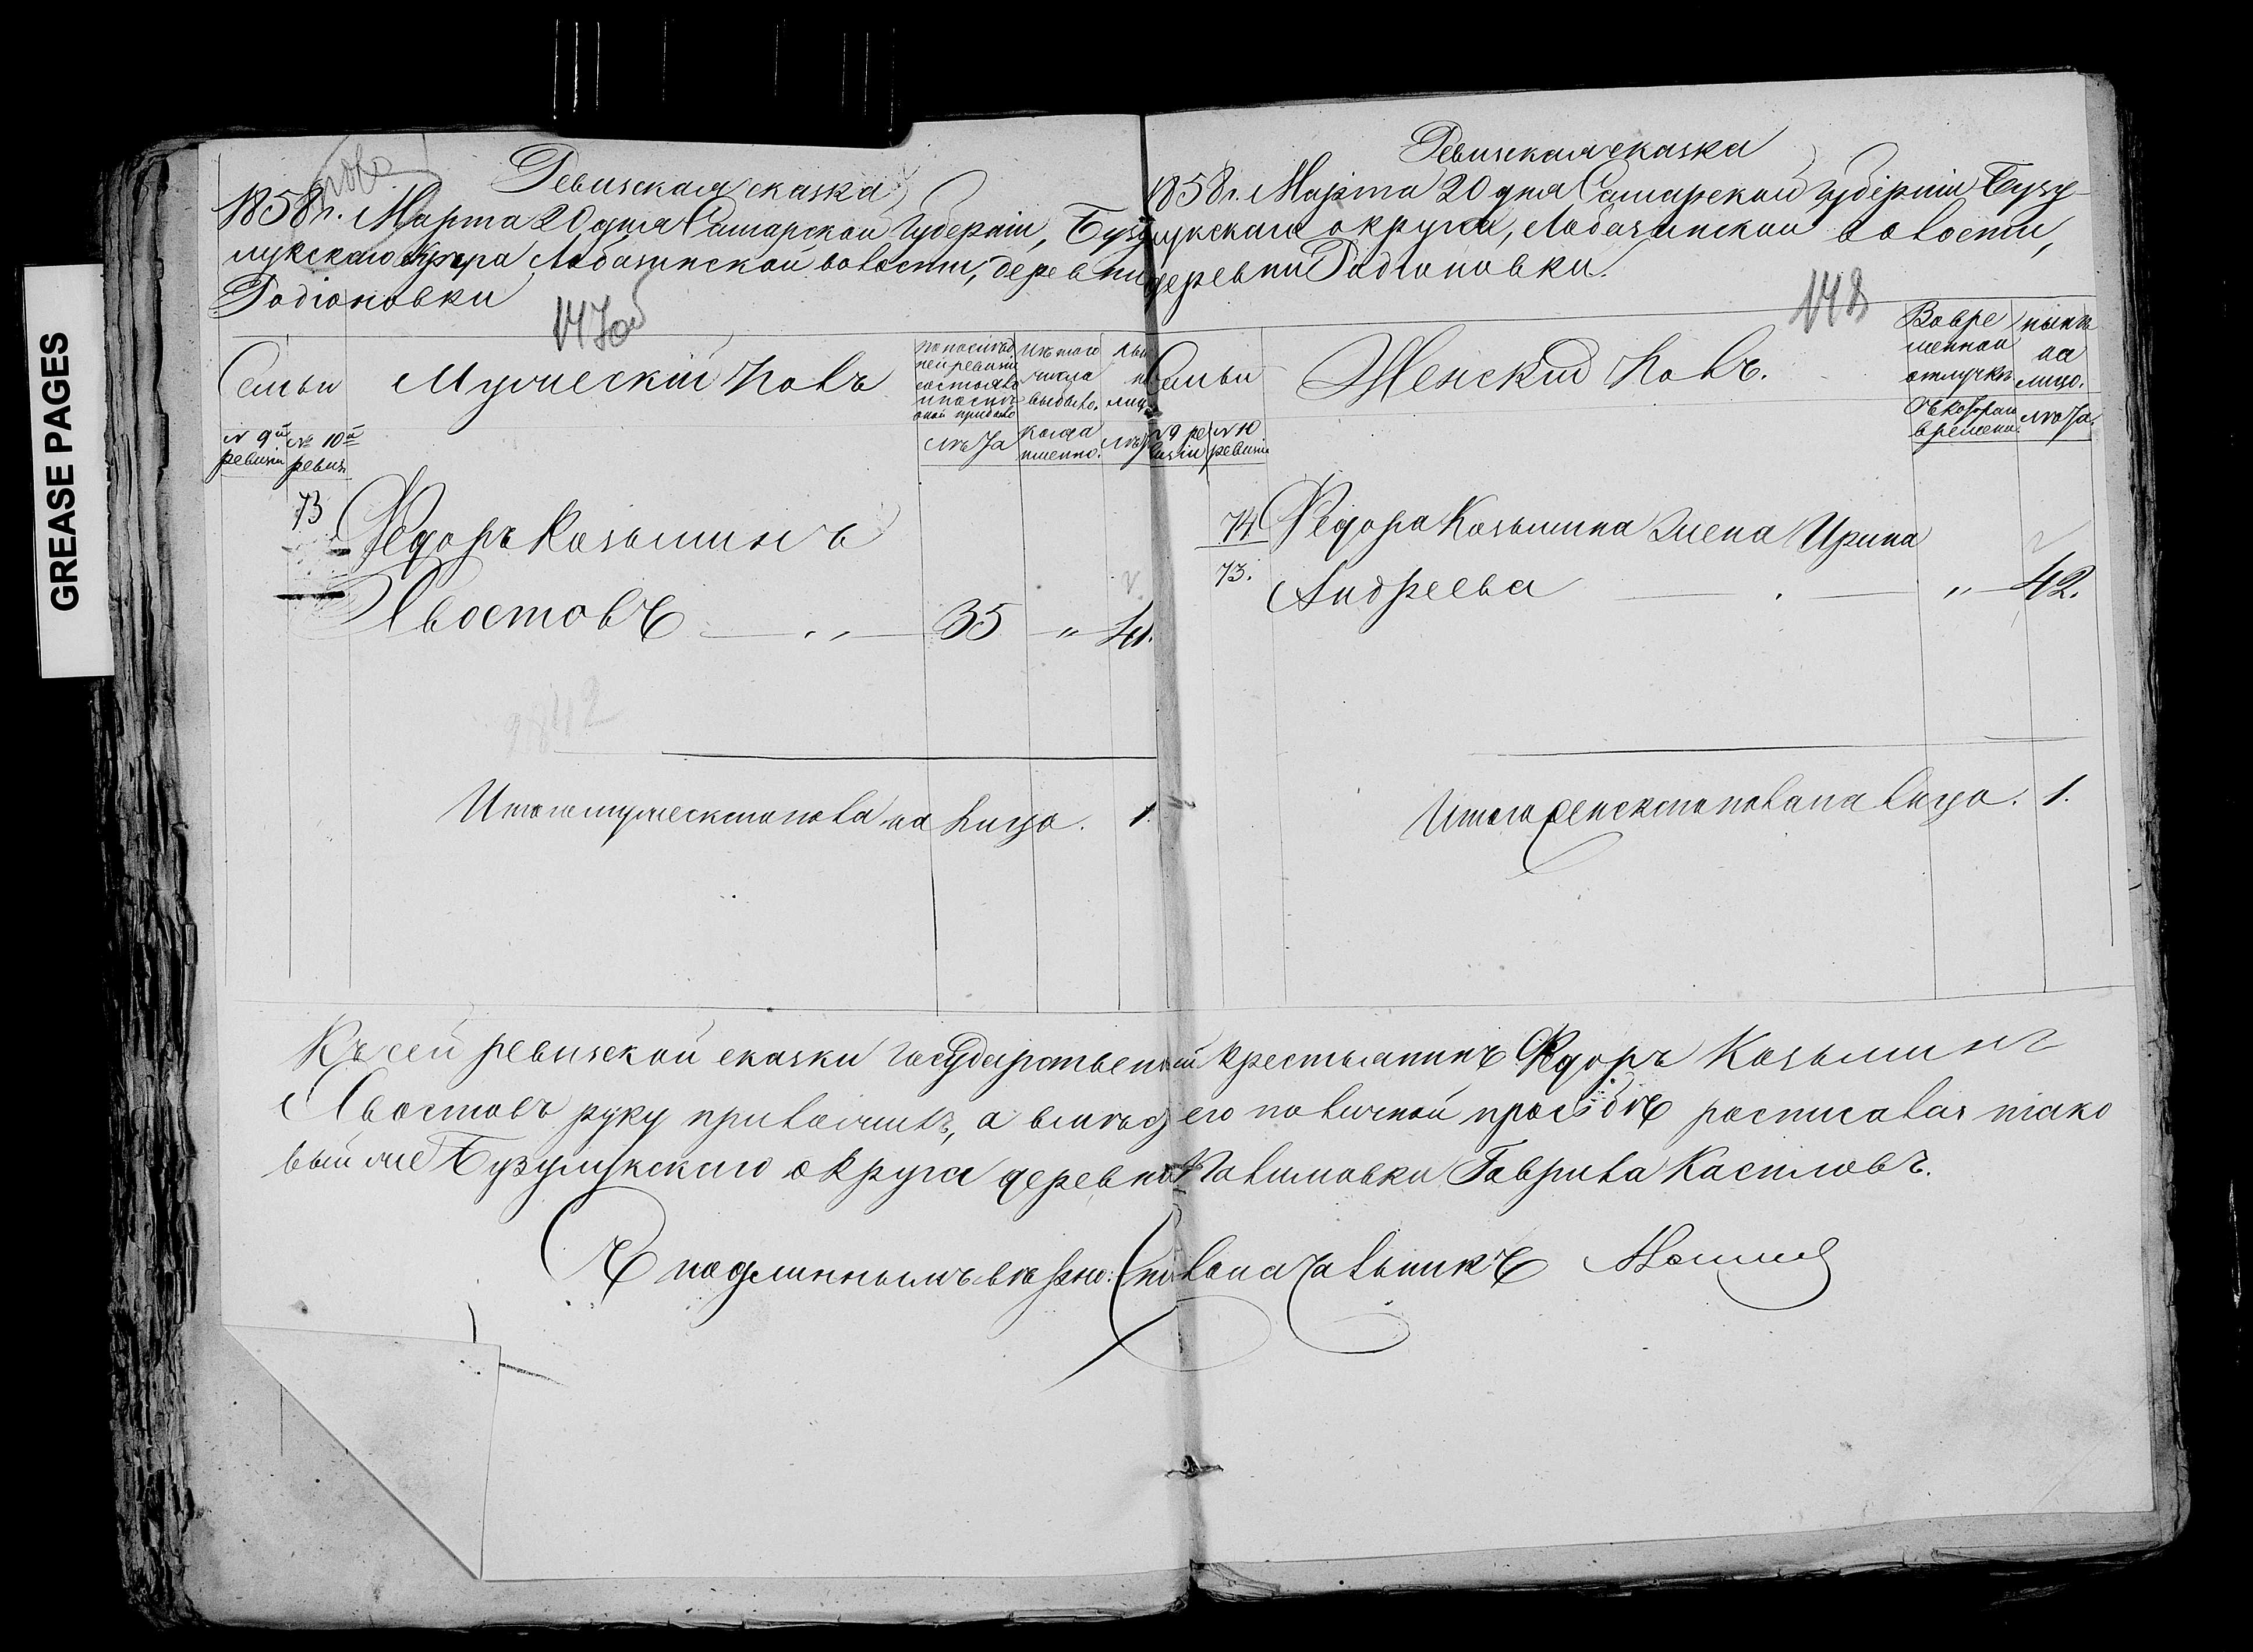 GREASE PAGES
Ревизская сказка
1858 г. Марта 20 дня Самарской Губерніи, Бузу
лукскаго округа Лобазинской волости, деревни
Родіоновки
147об
Семьи
Мужескій полъ
По послѣд
ней ревизіи
состояло
и послѣ
оной прибыло
Изъ того
числа
выбыло.
№ 9й ревизіи
№ 10й ревиз
лѣта
когда
именно.
73 Федоръ Козьминъ
Хвостовъ — „ — 35 — „ — 41.
2842
Итого мужеска пола на лицо. 1.
Ревизская сказка
1858 г. Марта 20 дня Самарской губерніи Бузу
лукскаго округа, Лобазинской волости,
деревни Родіоновки.
148
Семьи
Женскій полъ.
Во вре
менной
отлучкѣ
нынѣ
на
лицо.
№ 9 ре
визіи
№ 10
ревизіи
Съ котораго
времени.
лѣта.
74 Федора Козьмина жена Ирина
73. Андреева — „ — 42.
Итого женска пола на лицо. 1.
Къ сей ревизской сказки государственный крестьянинъ Федоръ Козьминъ
Хвостовъ руку приложилъ, а вмѣсто его по личной прозьбѣ росписался тако
вый же Бузулукскаго округа деревни Гаврила
Съ подлиннымъ вѣрно: